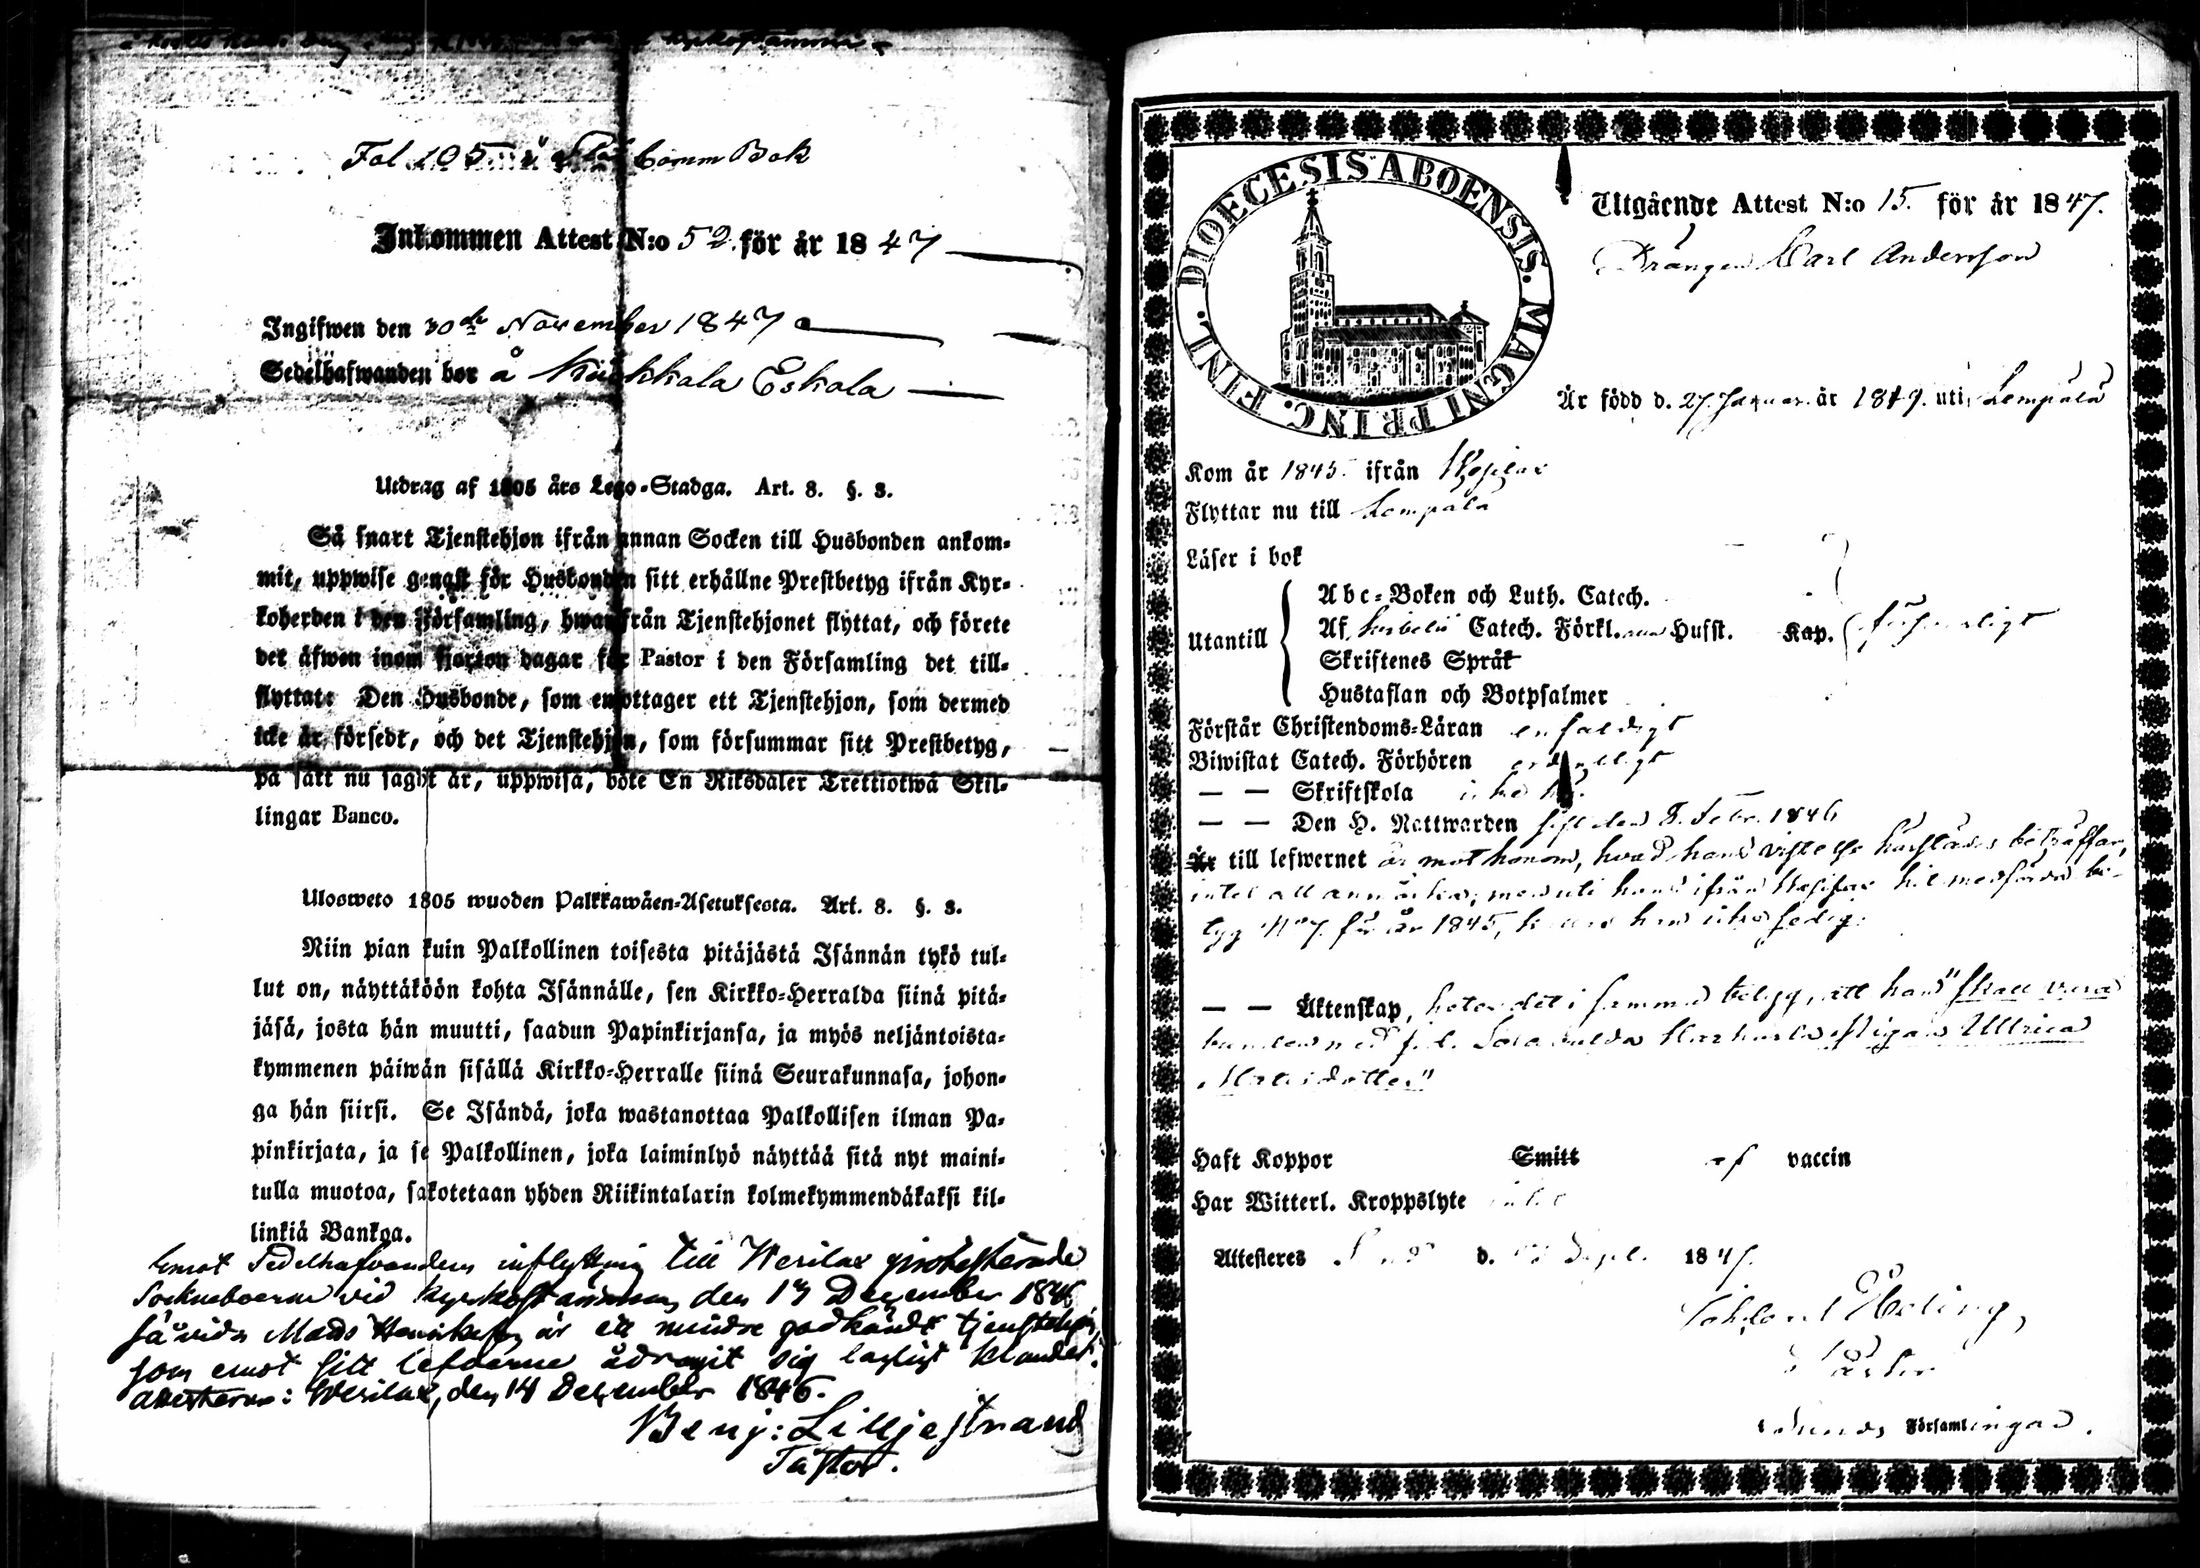 Fol 105 i Comm Bok
Inkommen Attest N:o 52. för år 1847
Ingifwen den 20de November 1847
Sedelhafwanden bor å Kuokkala Eskola
Utdrag af 1805 års Lego-Stadga. Art. 8. §. 3.
Så snart Tjenstehjon ifrån annan Socken till Husbonden ankom-
mit, uppwise genast för Husbonden sitt erhållne Prestbetyg ifrån Kyr-
koherden i den Församling, hwarifrån Tjenstehjonet flyttat, och förete
det äfwen inom fjorton dagar för Pastor i den Församling det till-
flyttat. Den Husbonde, som emottager ett Tjenstehjon, som dermed
icke är försedt, och det Tjenstehjon, som försummar sitt Prestbetyg,
på sätt nu sagdt är, uppwisa, böte En Riksdaler Trettiotwå Skil-
lingar Banco.
Ulosweto 1805 wuoden Palkkawäen-Asetuksesta. Art. 8. §. 3.
Niin pian kuin Palkollinen toisesta pitäjästä Isännän tykö tul-
lut on, näyttäköön kohta Isännälle, sen Kirkko-Herralda siinä pitä-
jäsä, josta hän muutti, saadun Papinkirjansa, ja myös neljäntoista-
kymmenen päiwän sisällä Kirkko-Herralle siinä Seurakunnasa, johon-
ga hän siirsi. Se Isändä, joka wastanottaa Palkollisen ilman Pa-
pinkirjata, ja se Palkollinen, joka laiminlyö näyttää sitä nyt maini-
tulla muotoa, sakotetaan yhden Riikintalarin kolmekymmendäkaksi kil-
linkiä Bankoa.
Emot Sedelhafvandens inflyttning till Wesilax protesterade
Sockneboerne vid Kyrkostämman den 13 December 1846
såvida Mats Henriksson är ett mindre godkändt tjenstehjon,
som emot sitt lefverne ådragit sig lagligt klander.
attesteras: Wesilax, den 14 December 1846.
Benj: Lilljestrand
Pastor.
DIOECESIS ABOENSIS. MAGNI PRINC. FINL.
Utgående Attest N:o 15. för år 1847.
Drängen Carl Andersson
Är född d. 27. Januar. år 1819. uti Lempälä
Kom år 1845. ifrån Wesilax
Flyttar nu till Lempälä
Läser i bok
Abc-Boken och Luth. Catech.
Utantill Af Catech. Förkl. Husst. Kap. försvarligt
Skriftenes Språk
Hustaflan och Botpsalmer
Förstår Christendoms-Läran enfaldigt
Biwistat Catech. Förhören ordentligt
— — Skriftskola icke här.
— — Den H. Nattwarden sist den 8. Febr. 1846
Är till lefwernet är mot honom, hvad hans vistelse härstädes beträffar,
intet att anmärka; men uti hans ifrån Wesilax hit medförda be-
tyg No 7. för år 1845, kallas han icke sedig.
— — Äktenskap, heter det i samma betyg, att han "skall vara
bunden med f. d. Soldatenkan Ullrica
Matsdotter"
Haft Koppor Smitt af vaccin
Har Witterl. Kroppslyte intet
Attesteras d. Sept. 1847.
Pastor
Församlingar.